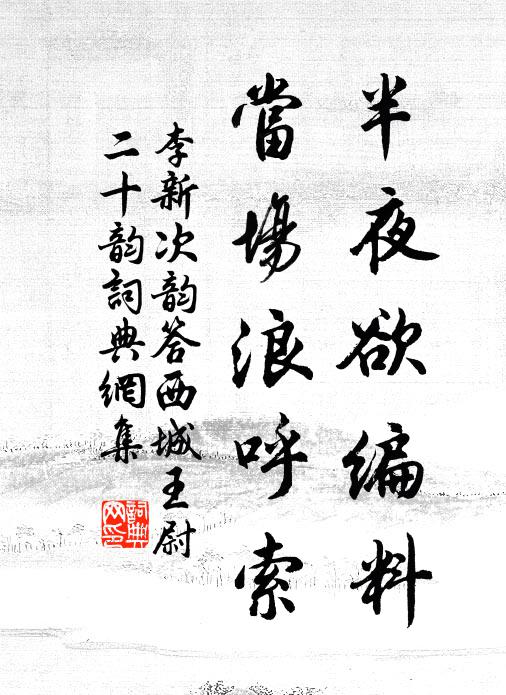 半夜欲编料
當場浪呼索
李新次韵答西城王尉
二十韵詞典網集
詞典
网印